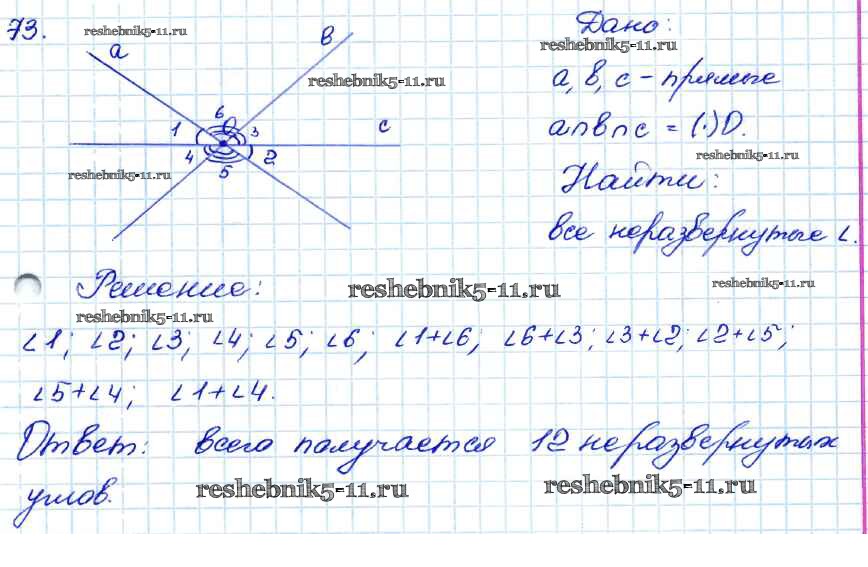 73.
reshebnik5-11.ru
a
b
Дано:
reshebnik5-11.ru
reshebnik5-11.ru
a, b, c - прямые
6
1
O
3
c
a∩b∩c = (·)O.
4
2
5
reshebnik5-11.ru
reshebnik5-11.ru
Найти:
все неразвернутые ∠.
Решение:
reshebnik5-11.ru
reshebnik5-11.ru
reshebnik5-11.ru
∠1; ∠2; ∠3; ∠4; ∠5; ∠6; ∠1+∠6; ∠6+∠3; ∠3+∠2; ∠2+∠5;
∠5+∠4; ∠1+∠4.
Ответ: всего получается 12 неразвернутых
углов.
reshebnik5-11.ru
reshebnik5-11.ru